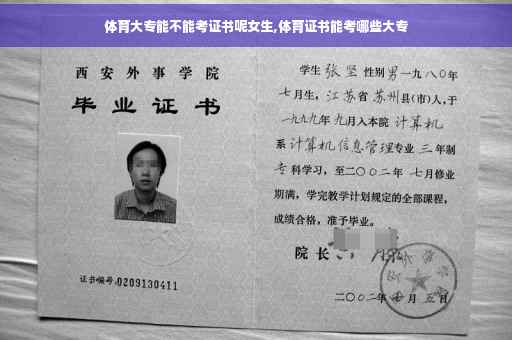 体育大专能不能考证书呢女生,体育证书能考哪些大专
西安外事学院
毕业证书
证书编号:0209130411
学生 张坚 性别 男 一九八〇年
七月生, 江苏省 苏州县(市)人,于
一九九九年 九月入本院 计算机
系 计算机信息管理 专业 三 年制
专科学习, 至二〇〇二年 七月修业
期满, 学完教学计划规定的全部课程,
成绩合格, 准予毕业。
院长
二〇〇二年 七月 五日